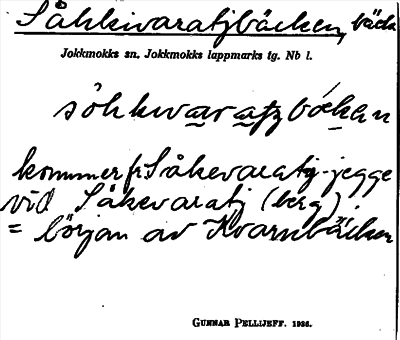 Såkkivaratjbäcken, bäck
Jokkmokks sn. Jokkmokks lappmarks tg. Nb l.
såkkwaratjbäcken
kommer fr. Såkevaratj-jegge
vid Såkevaratj (berg).
= början av Kvarnbäcken
GUNNAR PELLIJEFF. 1936.